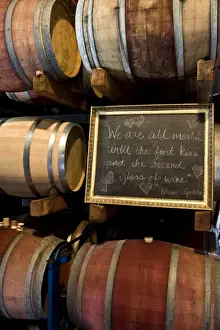 "We are all mortal
until the first kiss
and the second
glass of wine"